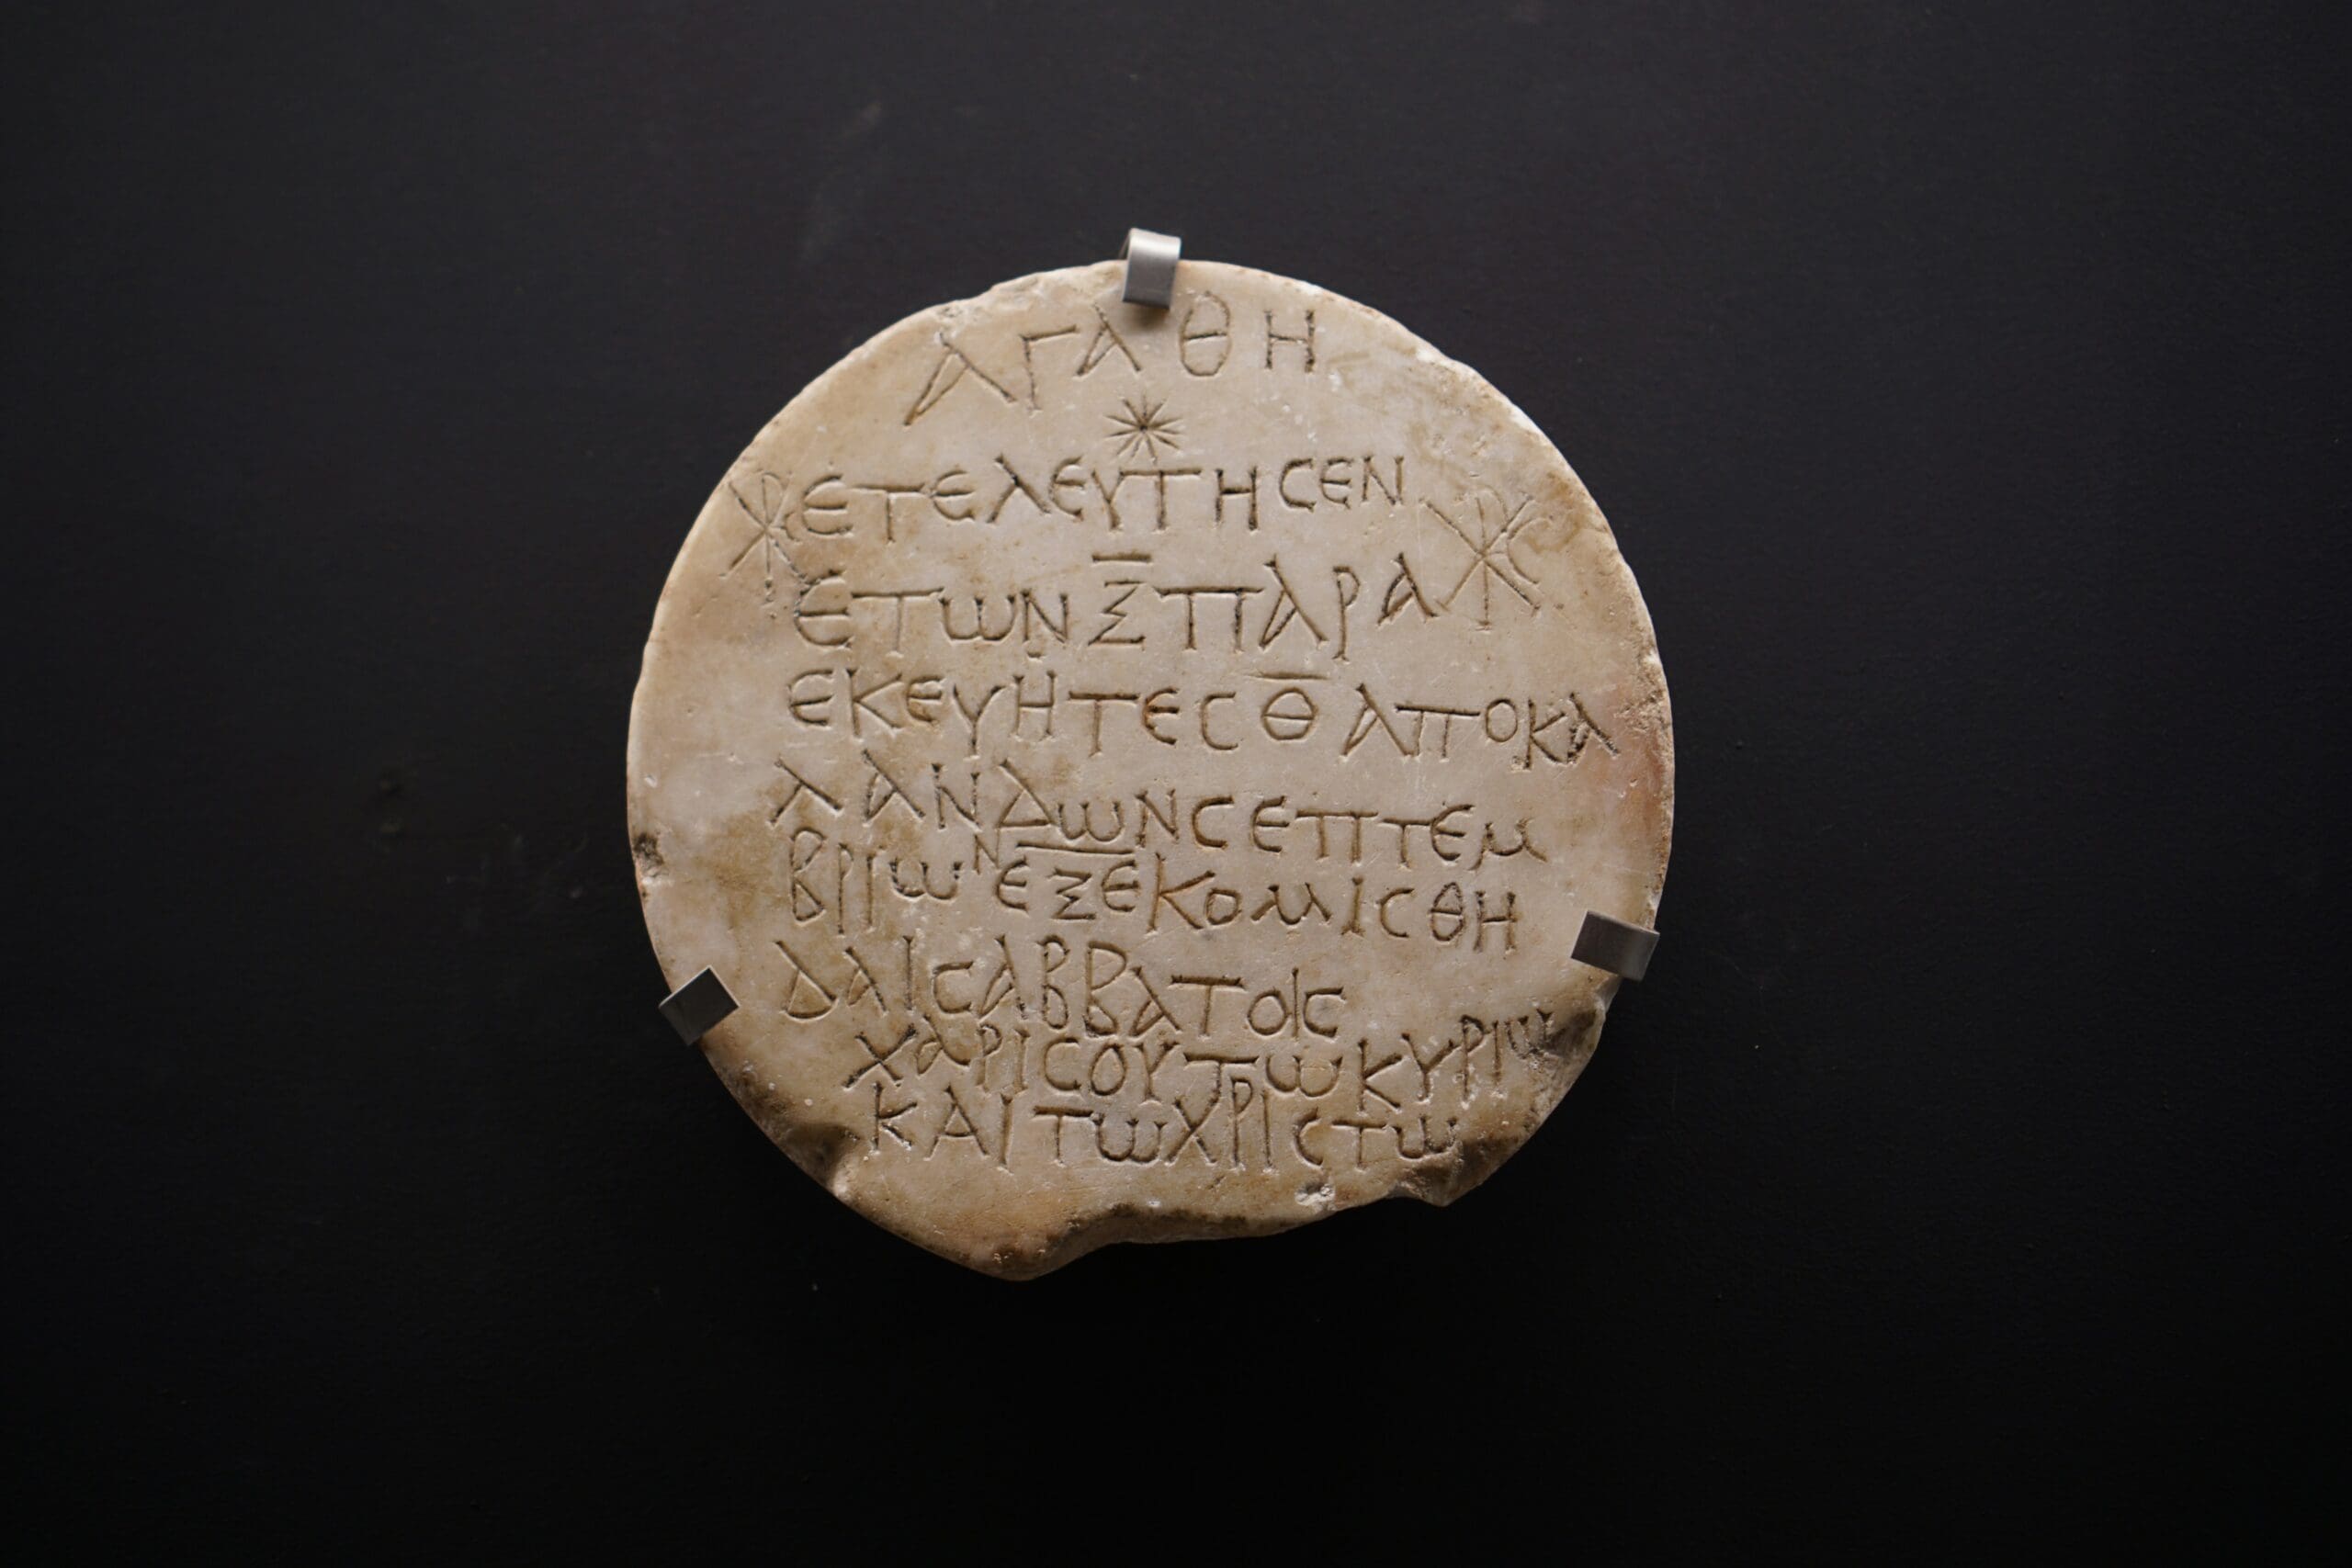 ΑΓΑΘΗ
ΕΤΕΛΕΥΤΗCΕΝ
ΕΤΩΝ Ξ̅ ΠΑΡΑ
ΕΚΕΥΗΤΕC Θ̅ ΑΠΟΚΑ
ΛΑΝΔΩΝ CΕΠΤΕΜ
ΒΡΙΩΝ ΕΞΕΚΟΜΙCΘΗ
ΔΑΙCΑΒΒΑΤΟΙC
ΧΑΡΙCΟΥ ΤΩ ΚΥΡΙΩ
ΚΑΙ ΤΩ ΧΡΙCΤΩ